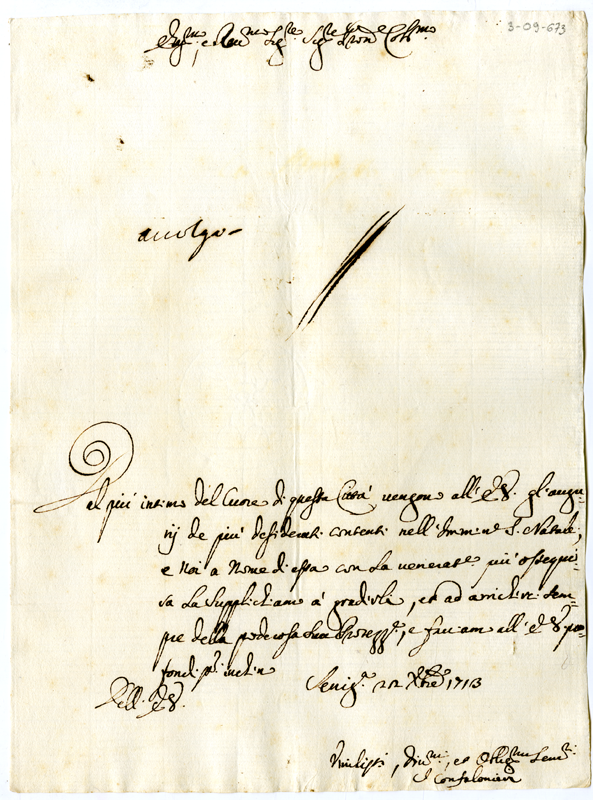 3-09-673
Em.mo, e Rev.mo Sig.re Sig.re Pron. e Col.mo
accolga
Dal più intimo del Cuore di questa Città vengono all' E. V. gli augu=
rij de più desiderati contenti nell' Immin.e S. Natale,
e Noi a Nome di essa con la venerat.e più ossequio=
sa La Supplichiamo à gradirli, et ad arrichirci sem=
pre della poderosa Sua Protezz.e, e facciam all' E. V. pro=
fondiss.i inchin
Dell' E. V. Senig.a 22 Xbre 1713
Umilissi, Div.mi, et Oblig.mi Serv.ri
Confaloniere